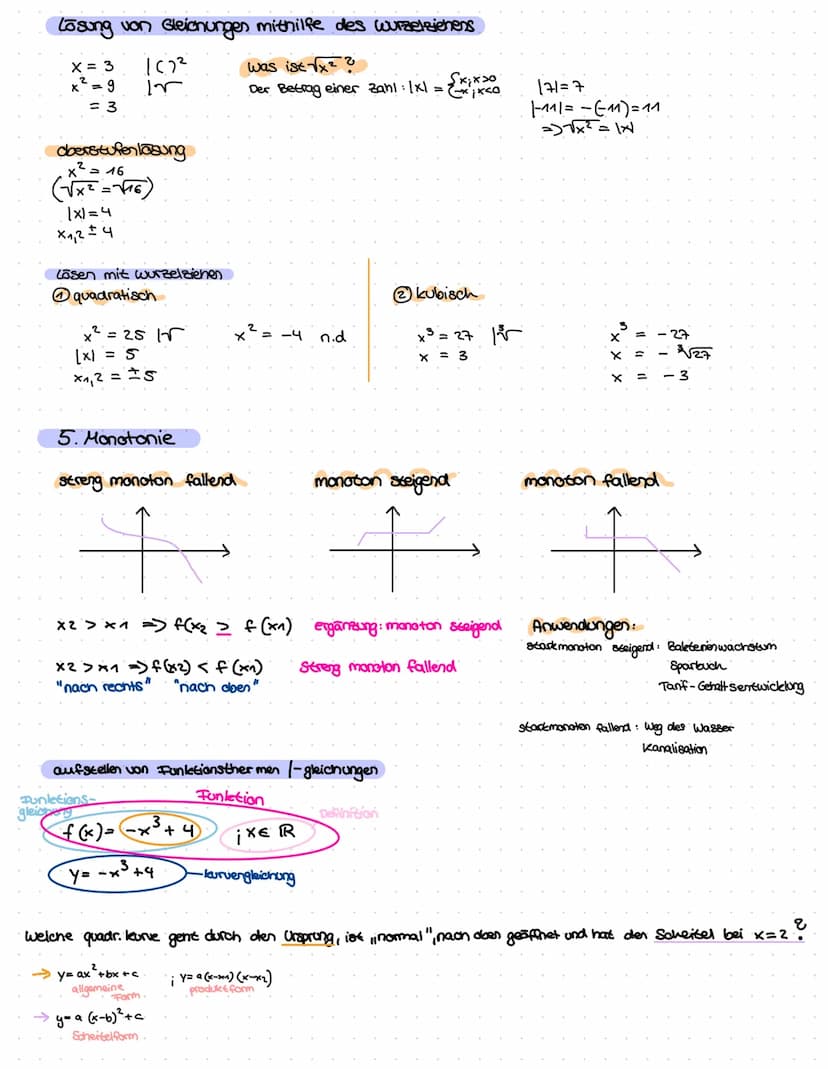 Lösung von Gleichungen mithilfe des Wurzelziehens
x = 3 | ( )²
x² = 9 | √
= 3
Was ist √x² ?
Der Betrag einer Zahl : |x| = { x ; x>0
-x ; x<0
|7| = 7
|-11| = -(-11) = 11
=> √x² = |x|
Oberstufenlösung
x² = 16
(√x² = √16)
|x| = 4
x1,2 ± 4
Lösen mit Wurzelziehen
① quadratisch
x² = 25 | √
|x| = 5
x1,2 = ± 5
x² = -4 n.d
② kubisch
x³ = 27 | ³√
x = 3
x³ = -27
x = - ³√27
x = -3
5. Monotonie
streng monoton fallend
monoton steigend
monoton fallend
x2 > x1 => f(x2 ≥ f(x1) ergänzung: monoton steigend
x2 > x1 => f(x2) < f(x1) streng monoton fallend
"nach rechts" "nach oben"
Anwendungen:
starkmonoton steigend: Bakterienwachstum
Sparbuch
Tarif-Gehaltsentwicklung
starkmonoton fallend : Weg des Wasser
Kanalisation
aufstellen von Funktionsthermen /-gleichungen
Funktions-
gleichung
Funktion
Definition
f(x) = -x³ + 4 ; x ∈ ℝ
y = -x³ + 4
kurvengleichung
Welche quadr. kurve geht durch den Ursprung, ist „normal", nach oben geöffnet und hat den Scheitel bei x=2 ?
→ y = ax² + bx + c ; y = a (x-x1) (x-x2)
allgemeine
Form
produktform
→ y = a (x-b)² + c
Scheitelform